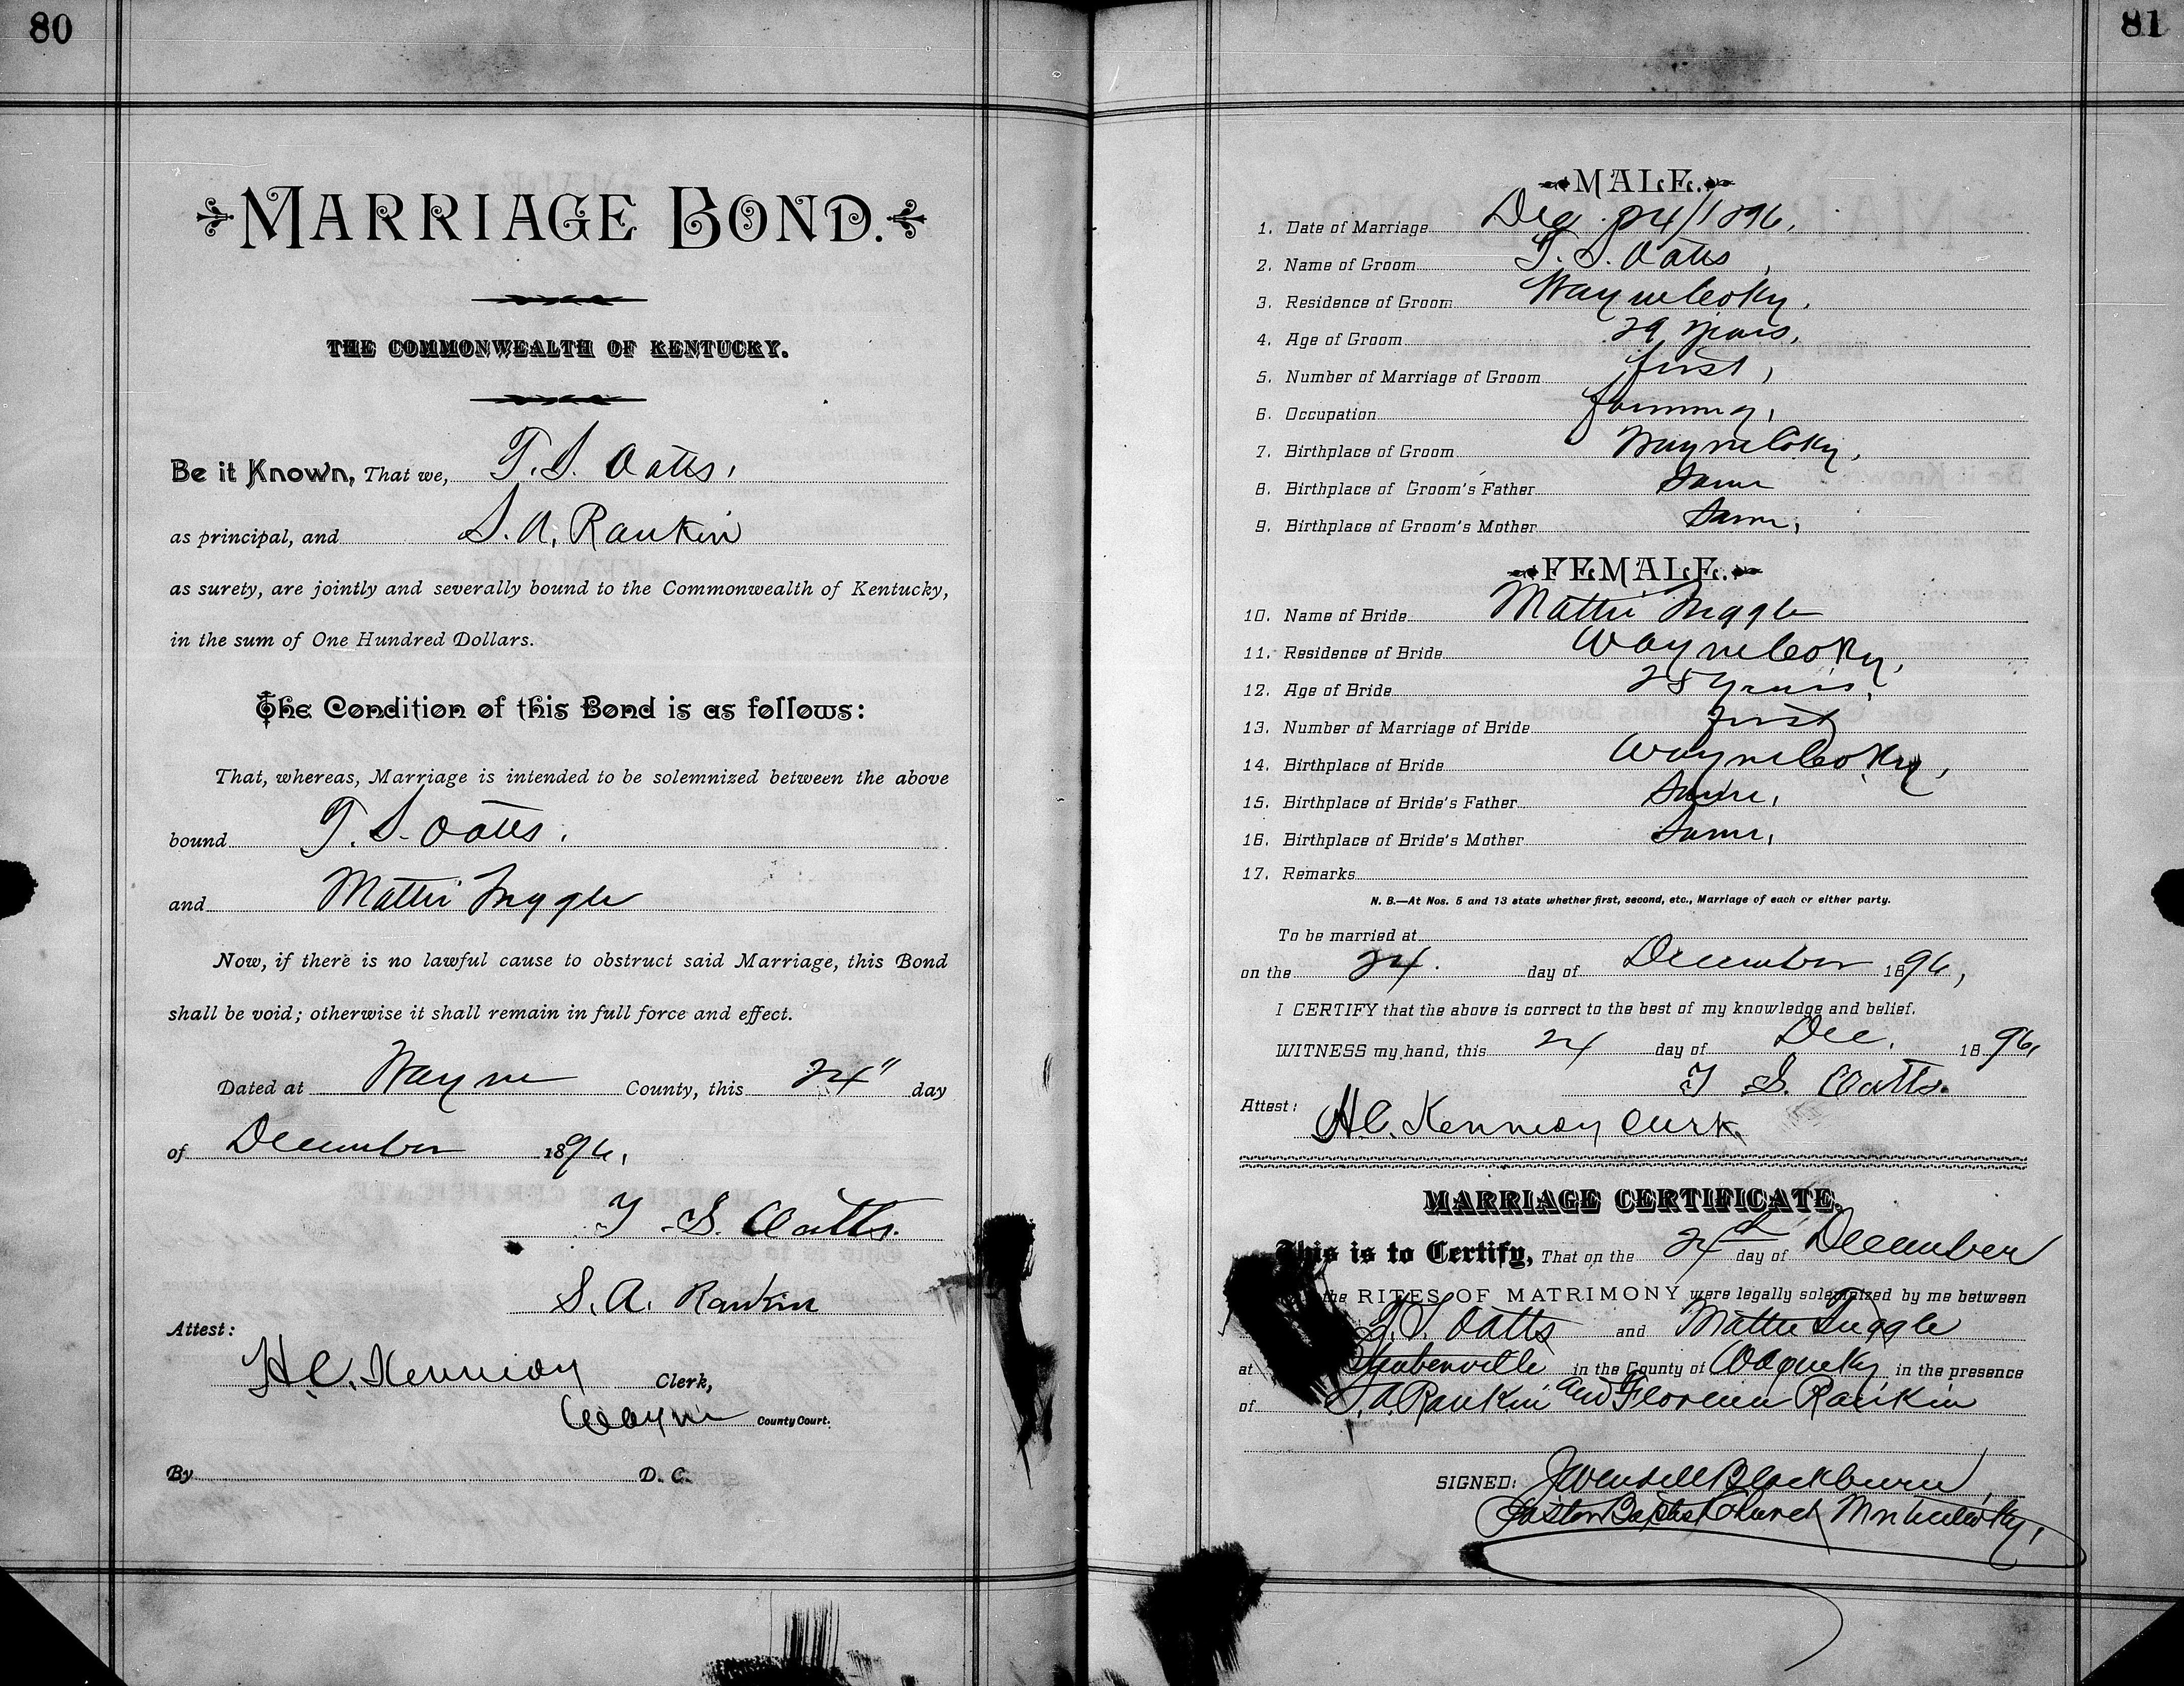 80
MARRIAGE BOND.
THE COMMONWEALTH OF KENTUCKY.
Be it Known, That we, T. S. Oatts,
as principal, and S. A. Rankin
as surety, are jointly and severally bound to the Commonwealth of Kentucky,
in the sum of One Hundred Dollars.
The Condition of this Bond is as follows:
That, whereas, Marriage is intended to be solemnized between the above
bound T. S. Oatts.
and Mattie Tuggle
Now, if there is no lawful cause to obstruct said Marriage, this Bond
shall be void; otherwise it shall remain in full force and effect.
Dated at Wayne County, this 24" day
of December 1896,
T. S. Oatts.
S. A. Rankin
Attest:
H.C. Kennedy Clerk,
Wayne County Court.
By D. C.
81
MALE.
1. Date of Marriage Dec. 24/1896,
2. Name of Groom T. S. Oatts,
3. Residence of Groom Wayne Co Ky.
4. Age of Groom 29 years,
5. Number of Marriage of Groom first,
6. Occupation farming,
7. Birthplace of Groom Wayne Co Ky,
8. Birthplace of Groom's Father Same
9. Birthplace of Groom's Mother Same,
FEMALE.
10. Name of Bride Mattie Tuggle
11. Residence of Bride Wayne Co Ky,
12. Age of Bride 25 years,
13. Number of Marriage of Bride first
14. Birthplace of Bride Wayne Co Ky,
15. Birthplace of Bride's Father Same,
16. Birthplace of Bride's Mother Same,
17. Remarks
N. B.—At Nos. 5 and 13 state whether first, second, etc., Marriage of each or either party.
To be married at
on the 24. day of December 1896,
I CERTIFY that the above is correct to the best of my knowledge and belief.
WITNESS my hand, this 24 day of Dec. 1896,
T S. Oatts.
Attest: H.C. Kennedy Clerk.
MARRIAGE CERTIFICATE.
This is to Certify, That on the 24th day of December
the RITES OF MATRIMONY were legally solemnized by me between
T. S. Oatts and Mattie Tuggle
at Steubenville in the County of Wayne Ky, in the presence
of S. A. Rankin and Florence Rankin
SIGNED: J Wendell Blackburn,
Pastor Baptist Church Monticello Ky,